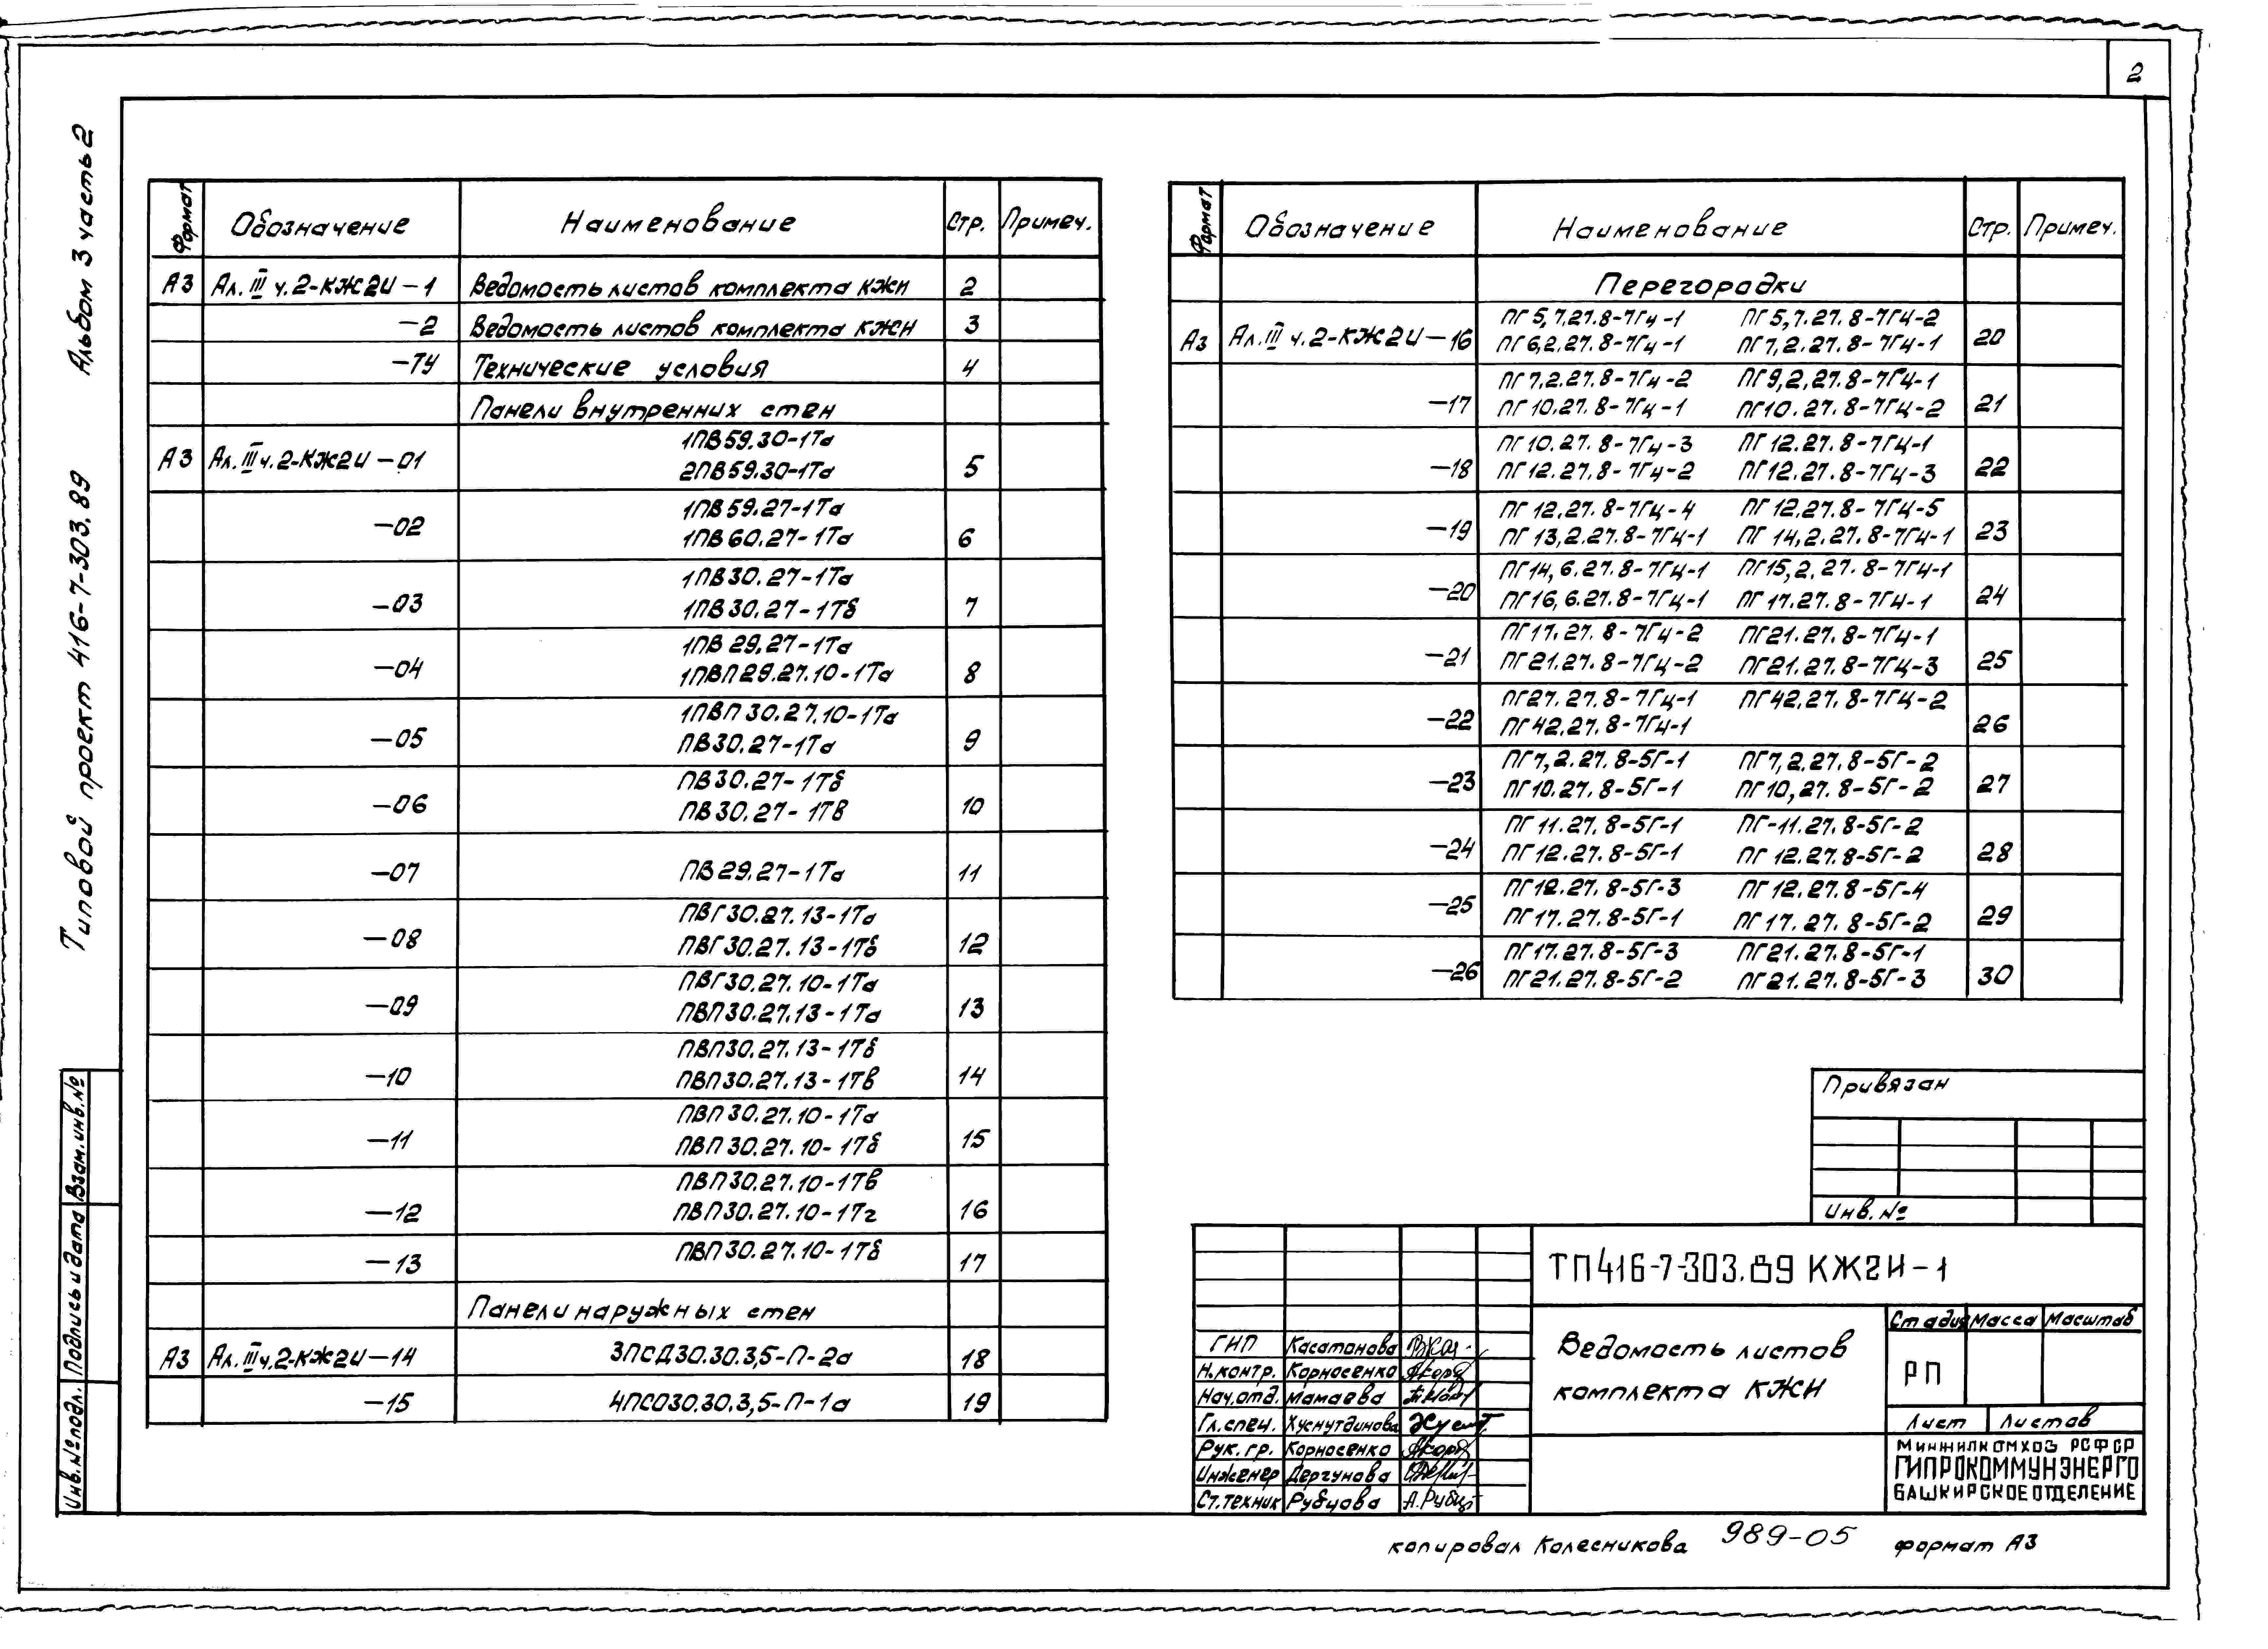 2
Альбом 3 часть 2
Типовой проект 416-7-303.89
Формат Обозначение Наименование Стр. Примеч.
А3 Ал. III ч.2-КЖ2И-1 Ведомость листов комплекта КЖИ 2
-2 Ведомость листов комплекта КЖИ 3
-ТУ Технические условия 4
Панели внутренних стен
А3 Ал. III ч.2-КЖ2И-01 1ПВ59.30-1Та
2ПВ59.30-1Та 5
-02 1ПВ59.27-1Та
1ПВ60.27-1Та 6
-03 1ПВ30.27-1Та
1ПВ30.27-1Тб 7
-04 1ПВ29.27-1Та
1ПВП29.27.10-1Та 8
-05 1ПВП30.27.10-1Та
ПВ30.27-1Та 9
-06 ПВ30.27-1Тб
ПВ30.27-1Тв 10
-07 ПВ29.27-1Та 11
-08 ПВГ30.27.13-1Та
ПВГ30.27.13-1Тб 12
-09 ПВГ30.27.10-1Та
ПВП30.27.13-1Та 13
-10 ПВП30.27.13-1Тб
ПВП30.27.13-1Тв 14
-11 ПВП30.27.10-1Та
ПВП30.27.10-1Тб 15
-12 ПВП30.27.10-1Тв
ПВП30.27.10-1Тг 16
-13 ПВП30.27.10-1Тб 17
Панели наружных стен
А3 Ал. III ч.2-КЖ2И-14 3ПСД30.30.3,5-П-2а 18
-15 4ПСО30.30.3,5-П-1а 19
Формат Обозначение Наименование Стр. Примеч.
Перегородки
А3 Ал. III ч.2-КЖ2И-16 ПГ5,7.27.8-7Гч-1 ПГ5,7.27.8-7Гч-2
ПГ6,2.27.8-7Гч-1 ПГ7,2.27.8-7Гч-1 20
-17 ПГ7,2.27.8-7Гч-2 ПГ9,2.27.8-7Гч-1
ПГ10.27.8-7Гч-1 ПГ10.27.8-7Гч-2 21
-18 ПГ10.27.8-7Гч-3 ПГ12.27.8-7Гч-1
ПГ12.27.8-7Гч-2 ПГ12.27.8-7Гч-3 22
-19 ПГ12.27.8-7Гч-4 ПГ12.27.8-7Гч-5
ПГ13,2.27.8-7Гч-1 ПГ14,2.27.8-7Гч-1 23
-20 ПГ14,6.27.8-7Гч-1 ПГ15,2.27.8-7Гч-1
ПГ16,6.27.8-7Гч-1 ПГ17.27.8-7Гч-1 24
-21 ПГ17.27.8-7Гч-2 ПГ21.27.8-7Гч-1
ПГ21.27.8-7Гч-2 ПГ21.27.8-7Гч-3 25
-22 ПГ27.27.8-7Гч-1 ПГ42.27.8-7Гч-2
ПГ42.27.8-7Гч-1 26
-23 ПГ7,2.27.8-5Г-1 ПГ7,2.27.8-5Г-2
ПГ10.27.8-5Г-1 ПГ10,27.8-5Г-2 27
-24 ПГ11.27.8-5Г-1 ПГ-11.27.8-5Г-2
ПГ12.27.8-5Г-1 ПГ12.27.8-5Г-2 28
-25 ПГ12.27.8-5Г-3 ПГ12.27.8-5Г-4
ПГ17.27.8-5Г-1 ПГ17.27.8-5Г-2 29
-26 ПГ17.27.8-5Г-3 ПГ21.27.8-5Г-1
ПГ21.27.8-5Г-2 ПГ21.27.8-5Г-3 30
Привязан
Инв.№
ТП416-7-303.89 КЖ2И-1
Ведомость листов
комплекта КЖИ
Стадия Масса Масштаб
РП
Лист Листов
Минжилкомхоз РСФСР
ГИПРОКОММУНЭНЕРГО
БАШКИРСКОЕ ОТДЕЛЕНИЕ
ГИП Касатонова
Н.контр. Корносенко
Нач.отд. Мамаева
Гл.спец. Хуснутдинова
Рук.гр. Корносенко
Инженер Дергунова
Ст.техник Рубцова
Инв.№подл. Подпись и дата Взам.инв.№
копировал Колесникова 989-05 формат А3